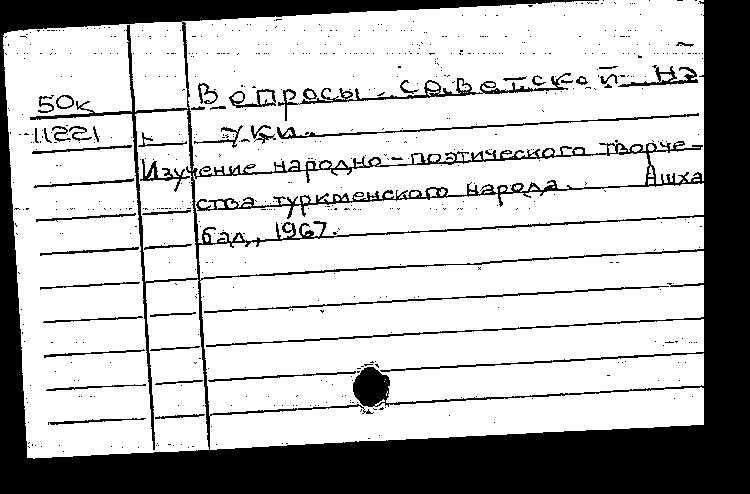 50к
Вопросы советской на-
11221 уки.
Изучение народно-поэтического творче-
ства туркменского народа. Ашха
бад, 1967.